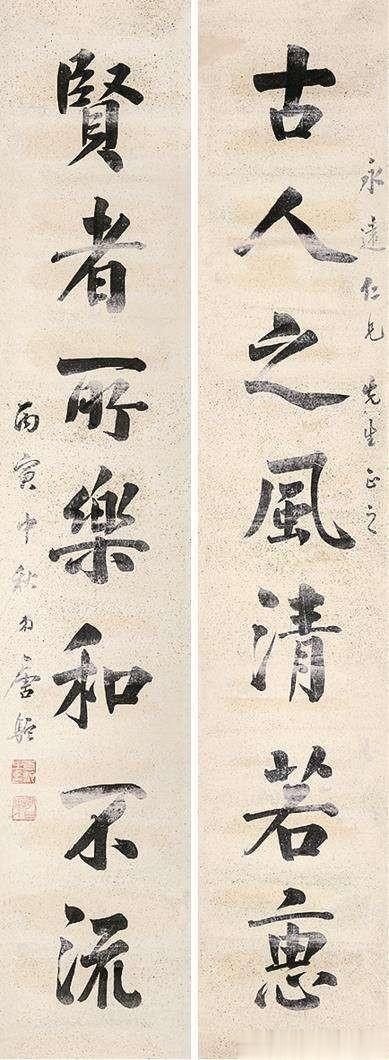 永達仁兄先生正之
古人之風清若恵
賢者所樂和不流
丙寅中秋弟唐駝